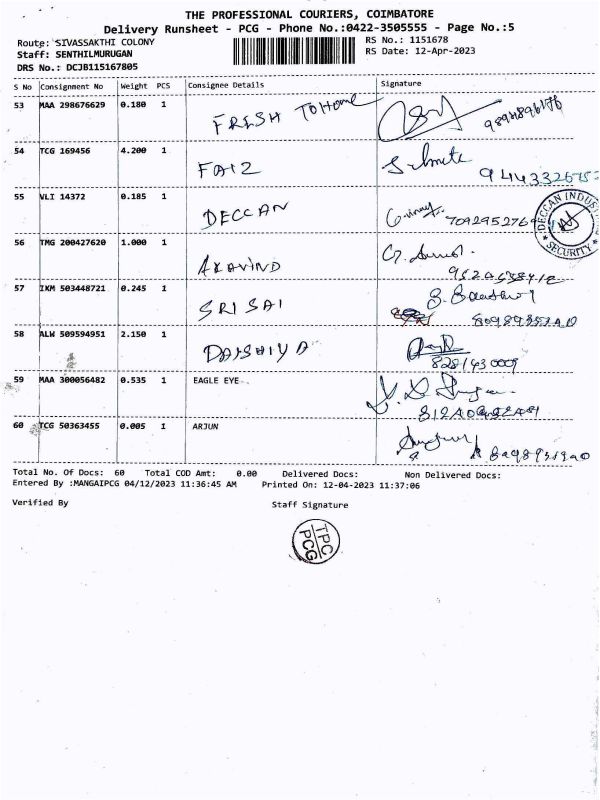 THE PROFESSIONAL COURIERS, COIMBATORE
Delivery Runsheet - PCG - Phone No.:0422-3505555 - Page No.:5
Route: SIVASSAKTHI COLONY RS No.: 1151678
Staff: SENTHILMURUGAN RS Date: 12-Apr-2023
DRS No.: DCJB115167805
S No Consignment No Weight PCS Consignee Details Signature
53 MAA 298676629 0.180 1 FRESH TOHOME
54 TCG 169456 4.200 1 FAIZ
55 VLI 14372 0.185 1 DECCAN
DECCAN INDUS
SECURITY
56 TMG 200427620 1.000 1 ARAVIND
57 IKM 503448721 0.245 1 SRI SAI
58 ALW 509594951 2.150 1
8281430009
59 MAA 300056482 0.535 1 EAGLE EYE
60 TCG 50363455 0.005 1 ARJUN
Total No. Of Docs: 60 Total COD Amt: 0.00 Delivered Docs: Non Delivered Docs:
Entered By :MANGAIPCG 04/12/2023 11:36:45 AM Printed On: 12-04-2023 11:37:06
Verified By Staff Signature
TPC
PCG